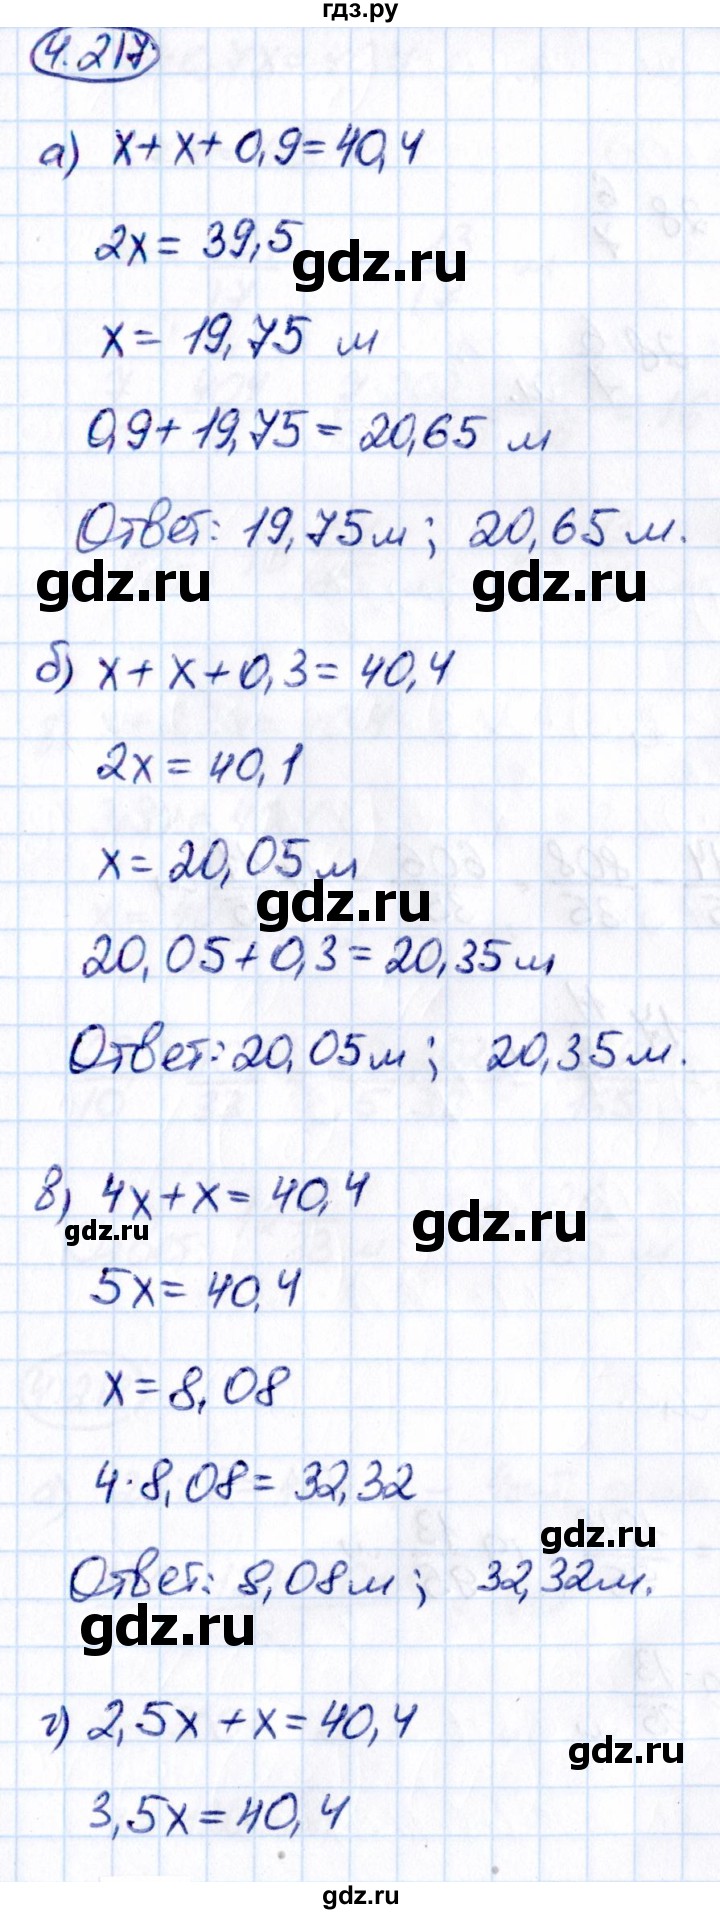 гдз.ру
4.217.
а) x + x + 0,9 = 40,4
2x = 39,5
gdz.ru
x = 19,75 м
0,9 + 19,75 = 20,65 м
Ответ: 19,75 м; 20,65 м.
gdz.ru gdz.ru
б) x + x + 0,3 = 40,4
2x = 40,1
x = 20,05 м
gdz.ru
20,05 + 0,3 = 20,35 м
Ответ: 20,05 м; 20,35 м.
в) 4x + x = 40,4
gdz.ru gdz.ru
5x = 40,4
x = 8,08
4 · 8,08 = 32,32
gdz.ru
Ответ: 8,08 м; 32,32 м.
gdz.ru
г) 2,5x + x = 40,4
gdz.ru
3,5x = 40,4
gdz.ru